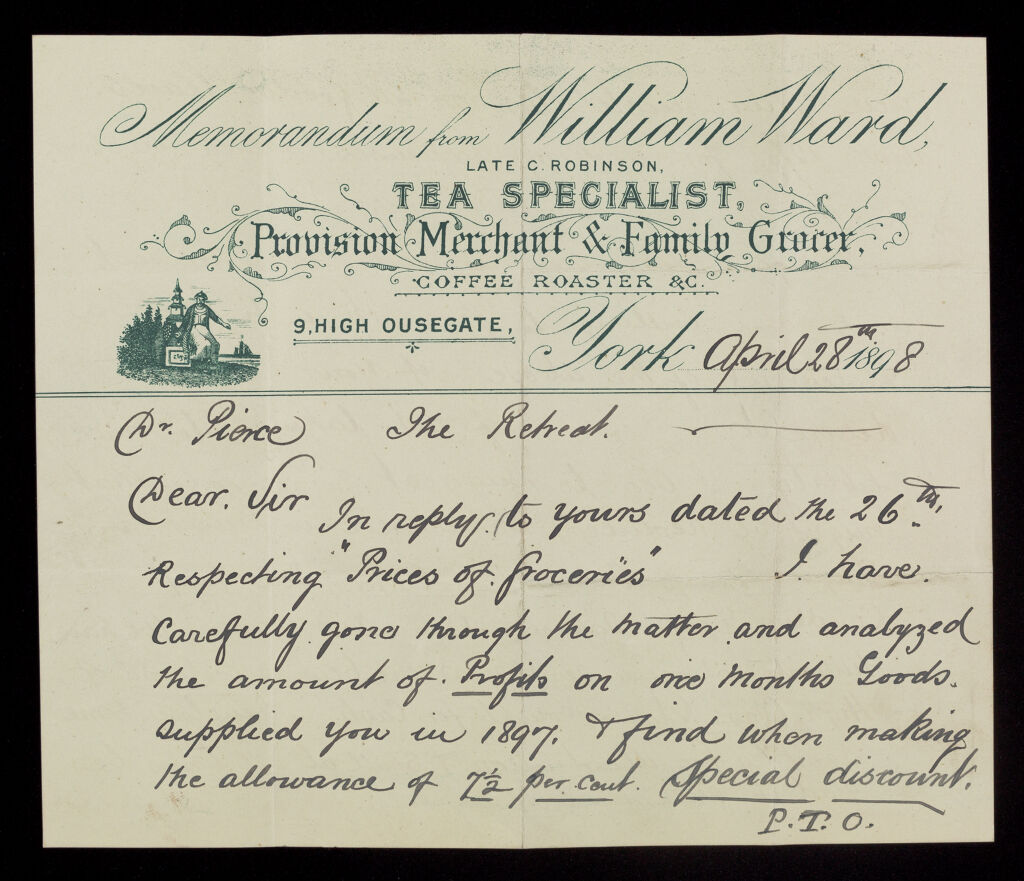 Memorandum from William Ward,
LATE C. ROBINSON,
TEA SPECIALIST,
Provision Merchant & Family Grocer,
COFFEE ROASTER &C.
9, HIGH OUSEGATE,
York April 28th 1898
Dr. Pierce The Retreat.
Dear. Sir
In reply. to yours dated the 26th.
Respecting "Prices of. Groceries" I. have.
Carefully gone through the matter. and analyzed
the amount of. Profits on one Months Goods.
supplied you in 1897. & find when making
the allowance of 7½ per. cent. Special discount.
P.T.O.